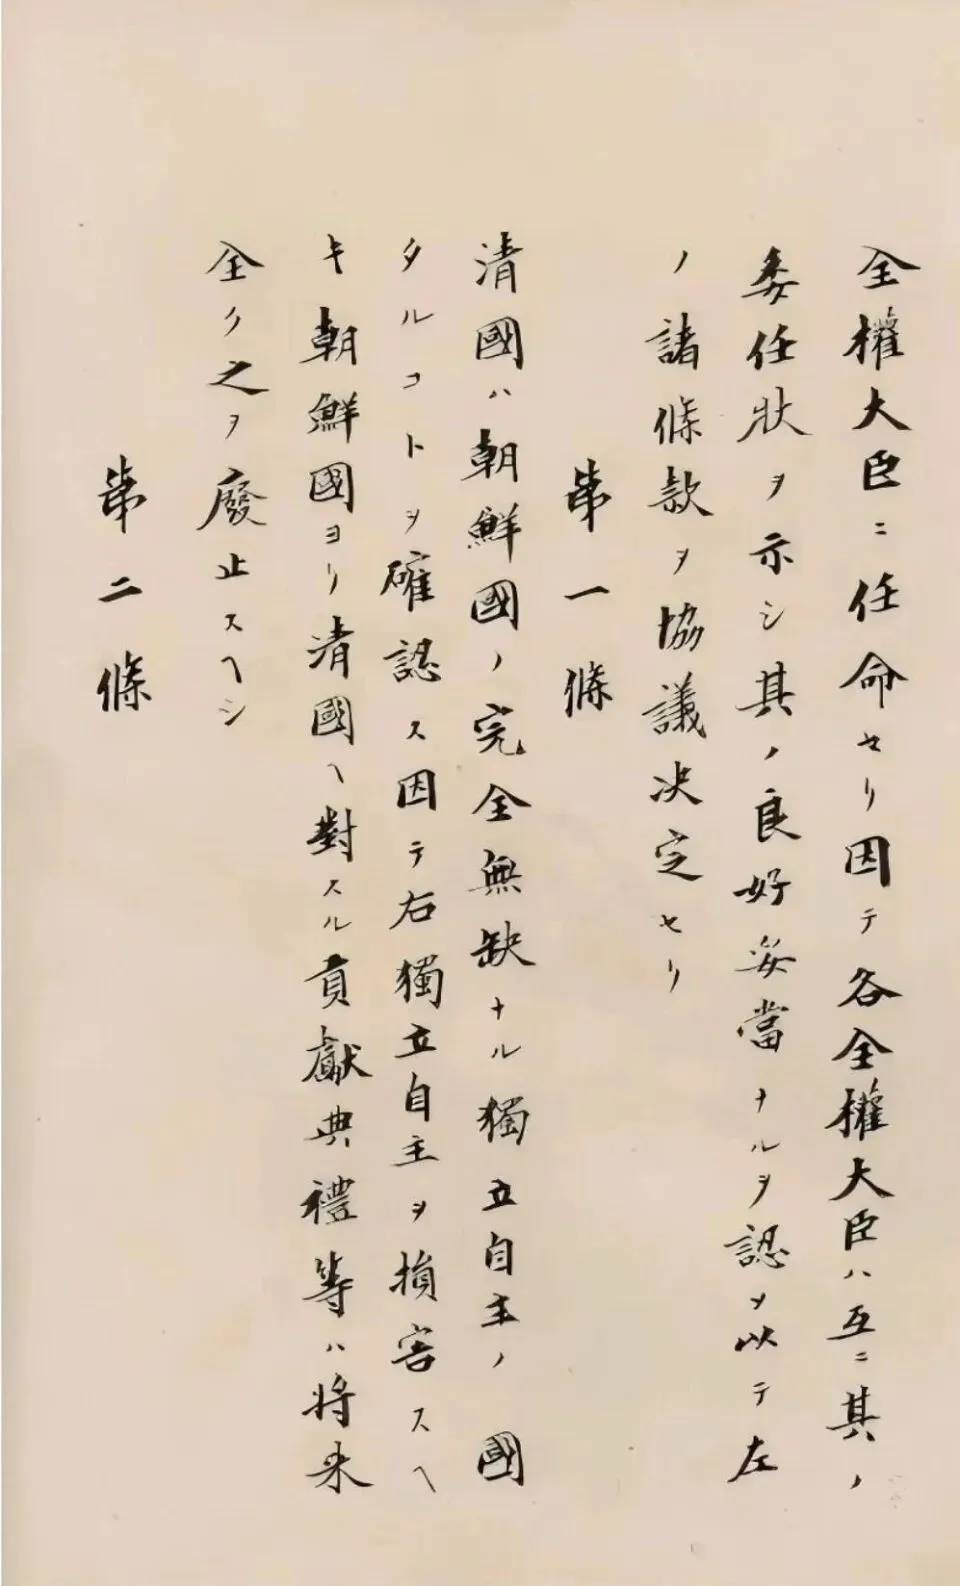 全權大臣ニ任命セリ因テ各全權大臣ハ互ニ其ノ
委任狀ヲ示シ其ノ良好妥當ナルヲ認メ以テ左
ノ諸條款ヲ協議決定セリ
第一條
清國ハ朝鮮國ノ完全無缺ナル獨立自主ノ國
タルコトヲ確認ス因テ右獨立自主ヲ損害スヘ
キ朝鮮國ヨリ清國ヘ對スル貢獻典禮等ハ將来
全ク之ヲ廢止スヘシ
第二條